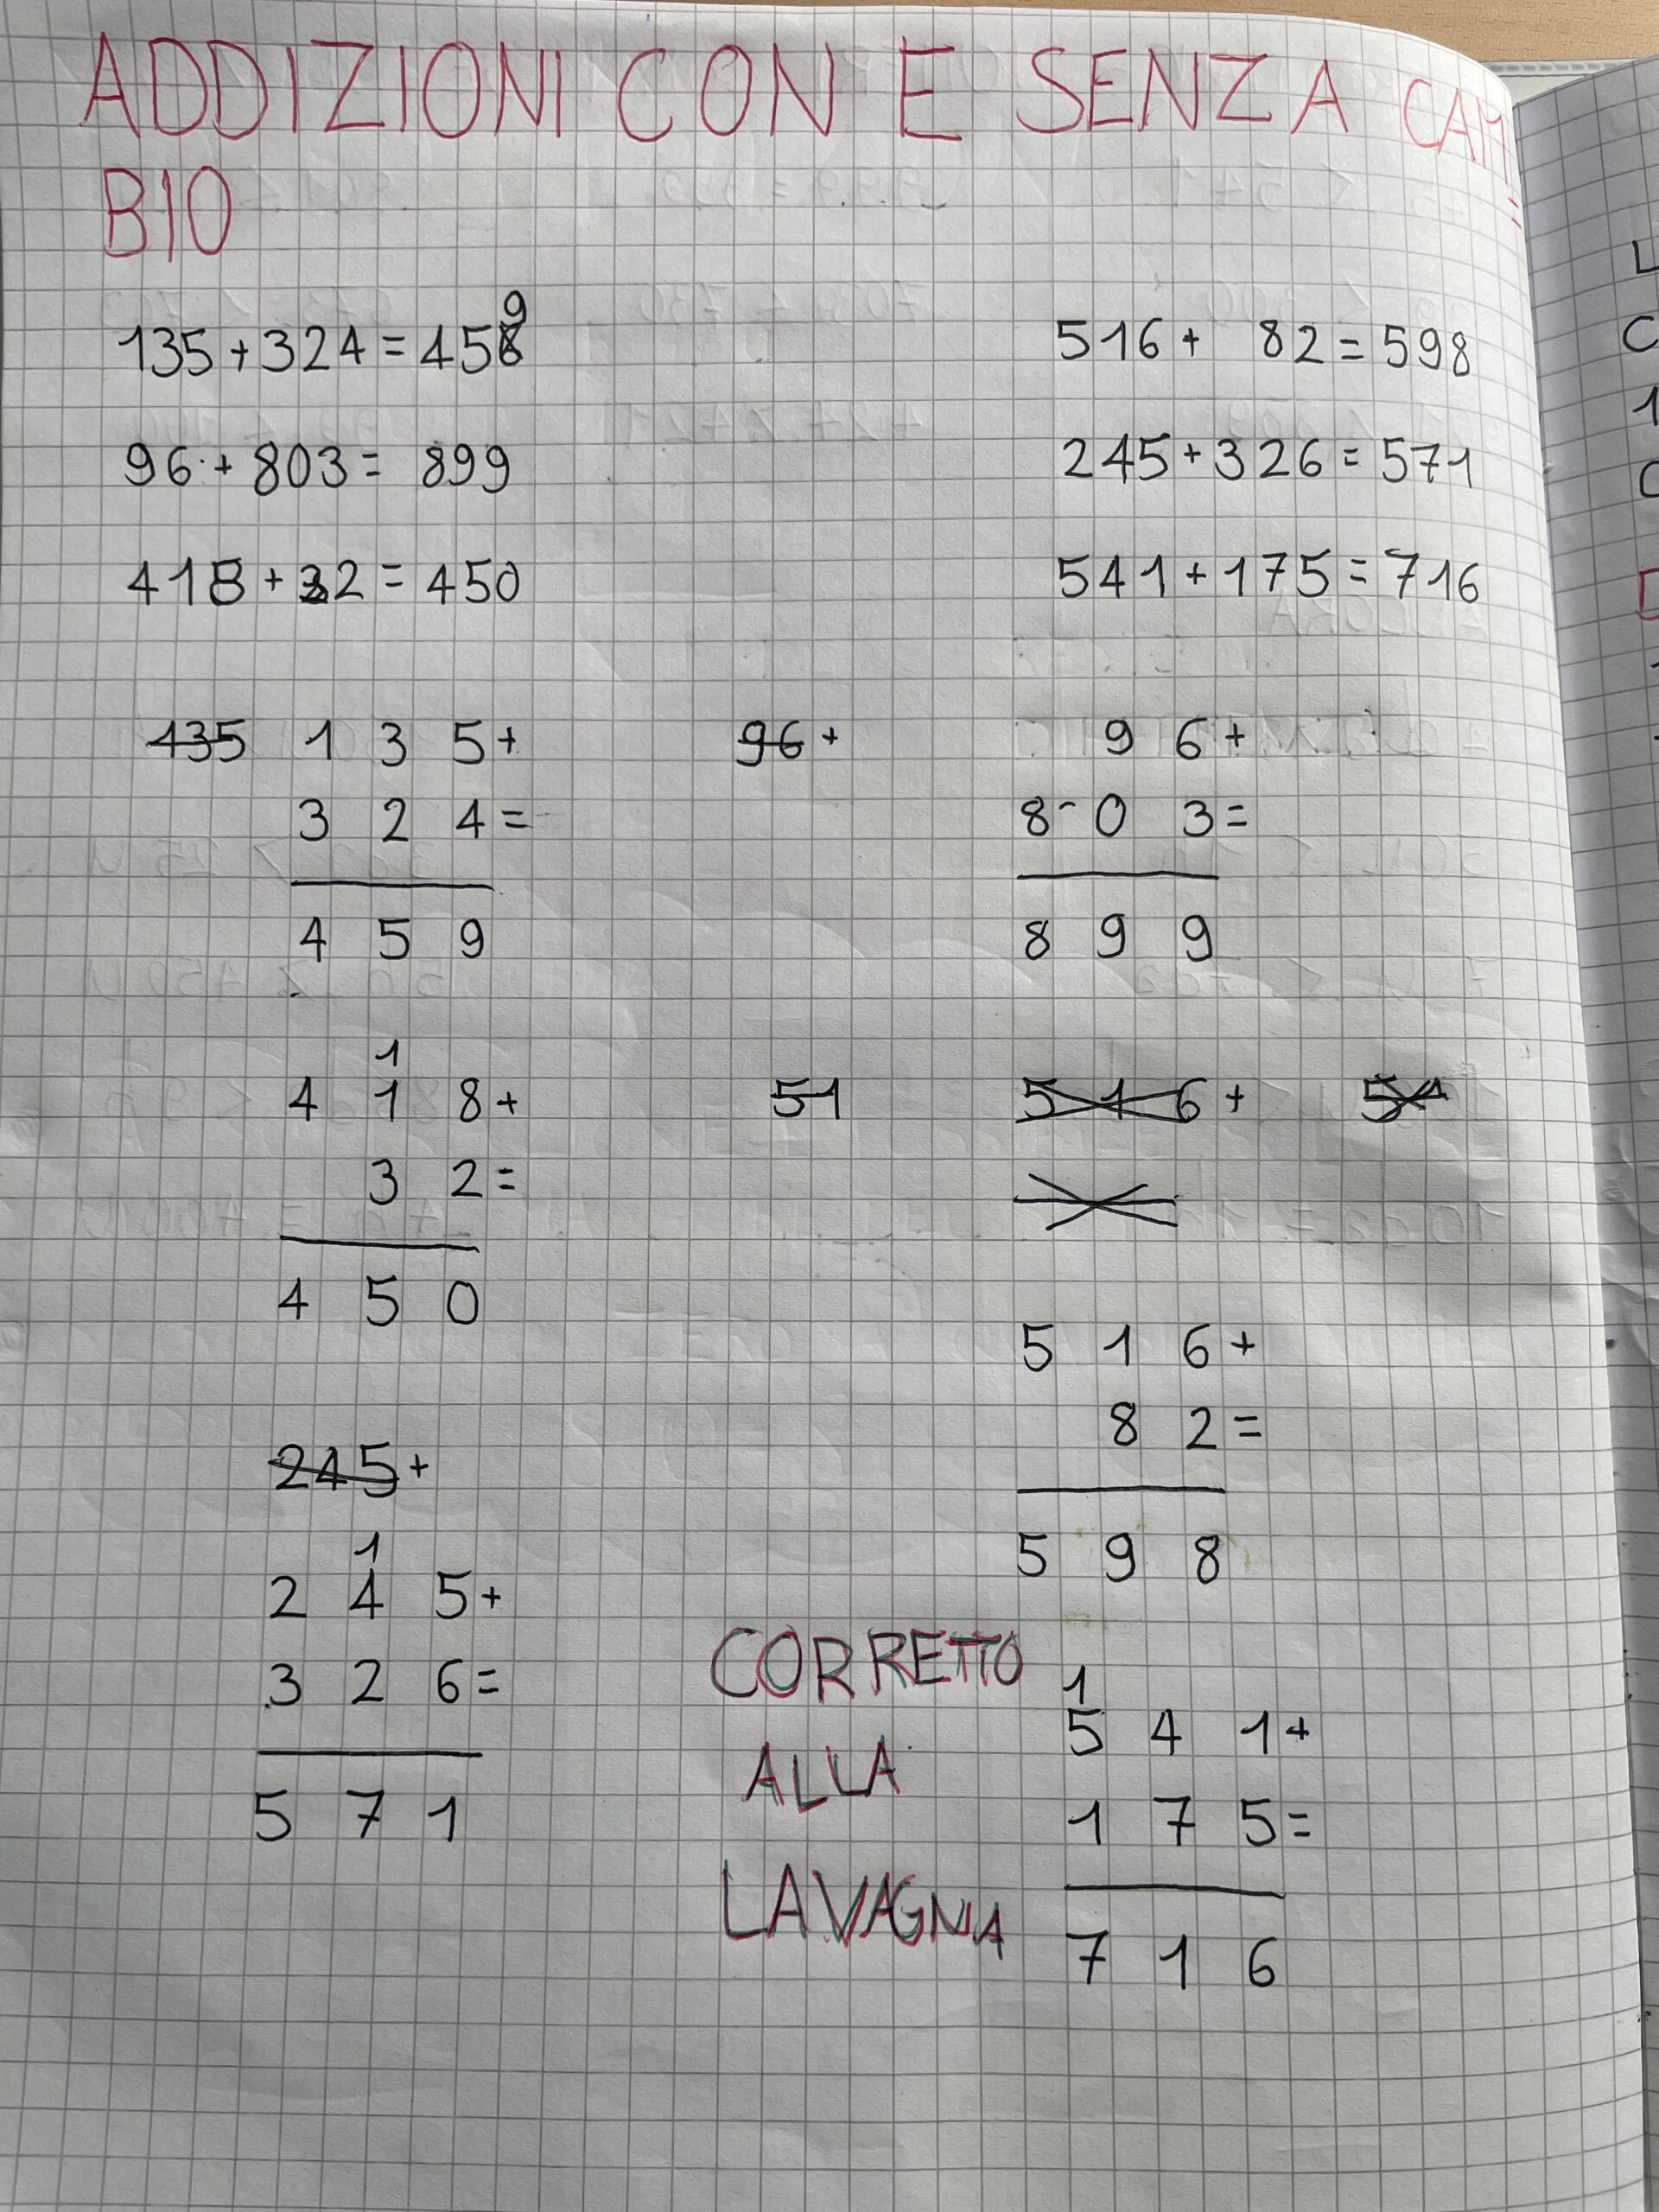 ADDIZIONI CON E SENZA CAM=
BIO
135+324=459
516+ 82=598
96+803=899
245+326=571
418+32=450
541+175=716
135 1 3 5+
3 2 4=
4 5 9
96+
9 6+
8 0 3=
8 9 9
1
4 1 8+
3 2=
4 5 0
51
5 1 6+
5 1 6+
8 2=
5 9 8
245+
1
2 4 5+
3 2 6=
5 7 1
CORRETTO
ALLA
LAVAGNA
1
5 4 1+
1 7 5=
7 1 6